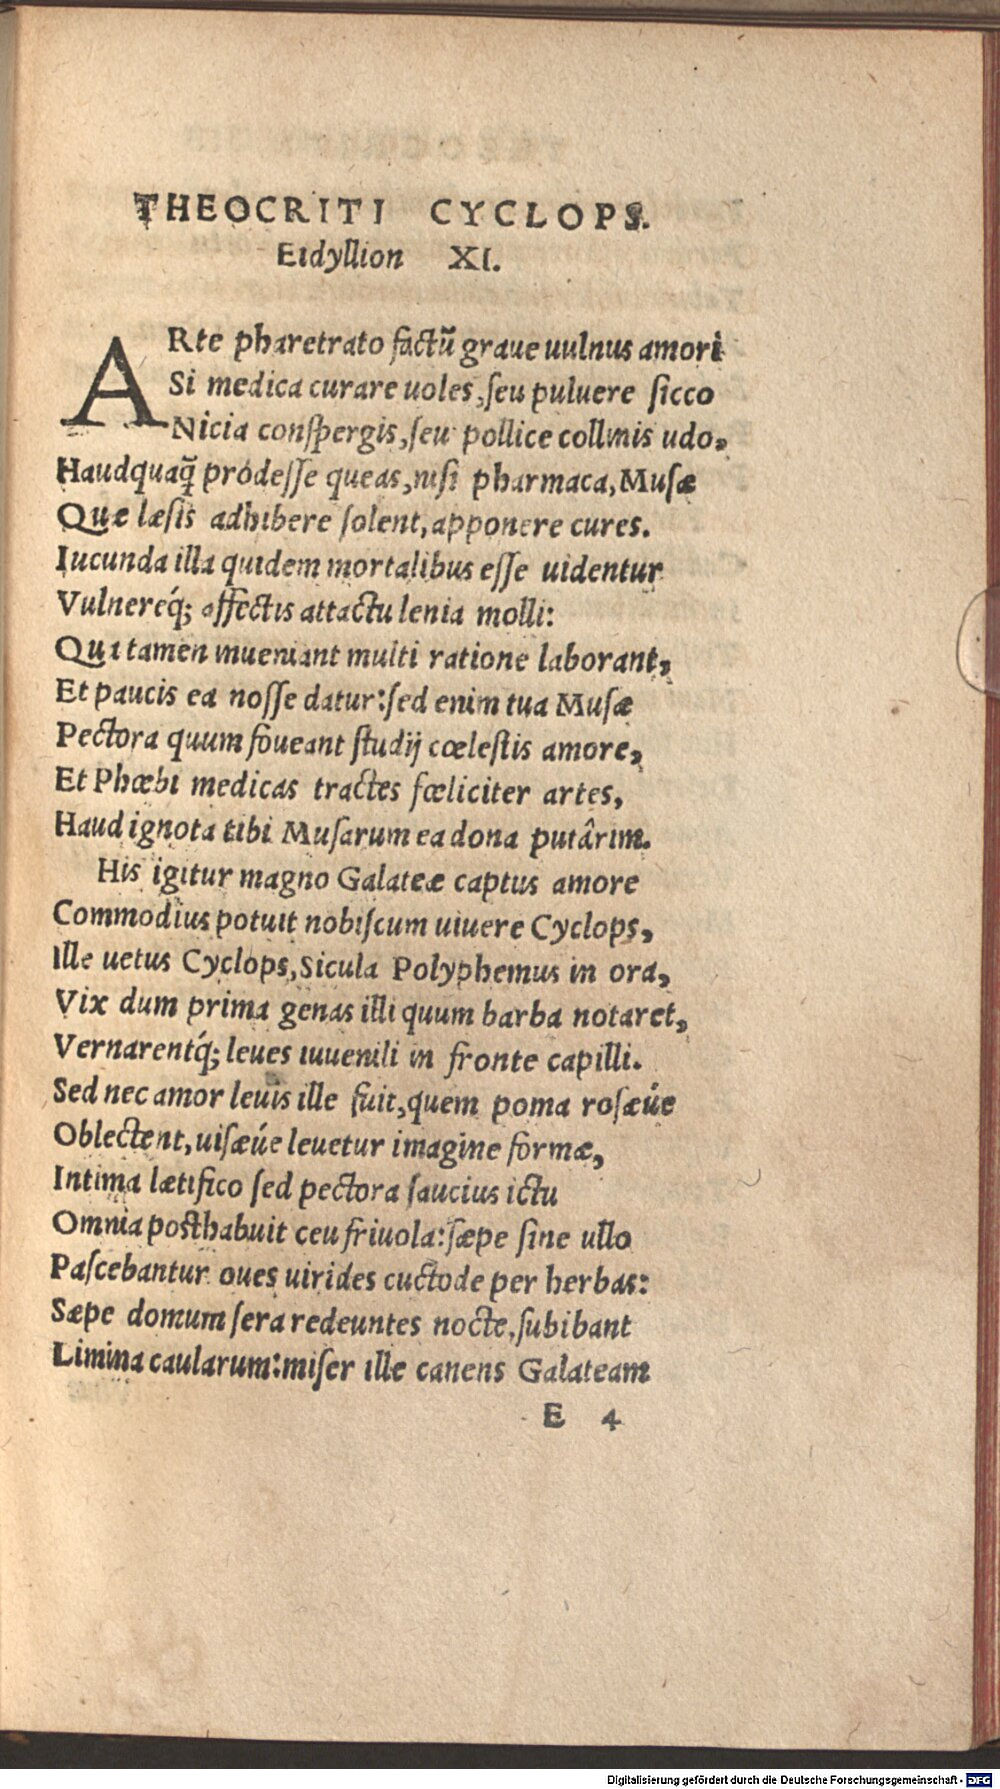 THEOCRITI CYCLOPS.
Eidyllion XI.
ARte pharetrato factũ graue uulnus amori
Si medica curare uoles, seu puluere sicco
Nicia conspergis, seu pollice collinis udo,
Haudquaq̃ prodesse queas, nisi pharmaca, Musæ
Quæ læsis adhibere solent, apponere cures.
Iucunda illa quidem mortalibus esse uidentur
Vulnereq́; affectis attactu lenia molli:
Qui tamen inueniant multi ratione laborant,
Et paucis ea nosse datur: sed enim tua Musæ
Pectora quum foueant studij cœlestis amore,
Et Phœbi medicas tractes fœliciter artes,
Haud ignota tibi Musarum ea dona putârim.
His igitur magno Galateæ captus amore
Commodius potuit nobiscum uiuere Cyclops,
Ille uetus Cyclops, Sicula Polyphemus in ora,
Vix dum prima genas illi quum barba notaret,
Vernarentq́; leues iuuenili in fronte capilli.
Sed nec amor leuis ille fuit, quem poma rosæúe
Oblectent, uisæúe leuetur imagine formæ,
Intima lætifico sed pectora saucius ictu
Omnia posthabuit ceu friuola: sæpe sine ullo
Pascebantur oues uirides cuctode per herbas:
Sæpe domum sera redeuntes nocte, subibant
Limina caularum: miser ille canens Galateam
E 4
Digitalisierung gefördert durch die Deutsche Forschungsgemeinschaft - DFG